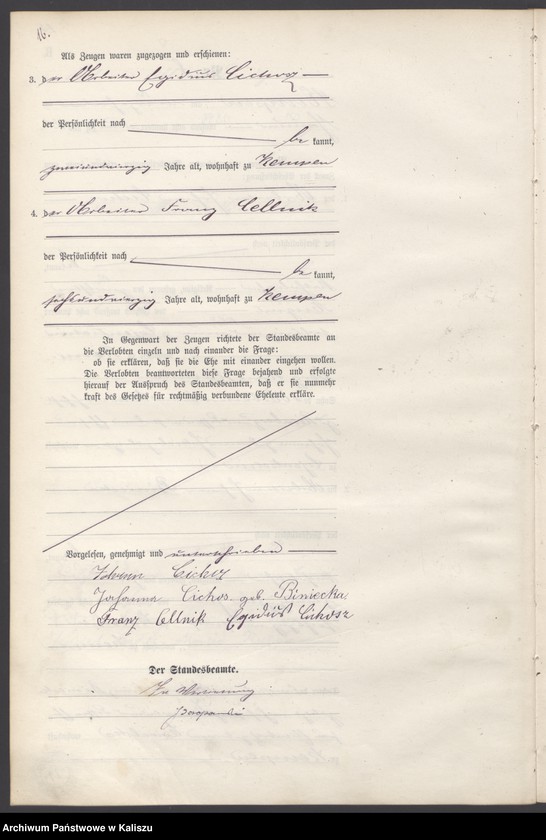 16.
Als Zeugen waren zugezogen und erschienen:
3. der Arbeiter Egidius Cichosz
der Persönlichkeit nach
be kannt,
zweiundvierzig Jahre alt, wohnhaft zu Kempen
4. der Arbeiter Franz Cellnik
der Persönlichkeit nach
be kannt,
sechsundvierzig Jahre alt, wohnhaft zu Kempen
In Gegenwart der Zeugen richtete der Standesbeamte an
die Verlobten einzeln und nach einander die Frage:
ob sie erklären, daß sie die Ehe mit einander eingehen wollen.
Die Verlobten beantworteten diese Frage bejahend und erfolgte
hierauf der Ausspruch des Standesbeamten, daß er sie nunmehr
kraft des Gesetzes für rechtmäßig verbundene Eheleute erkläre.
Vorgelesen, genehmigt und unterschrieben
Johann
Johanna Cichos. geb. Biniecka
Franz Cellnik Egidiüs Cichosz
Der Standesbeamte.
In Vertretung
Archiwum Państwowe w Kaliszu